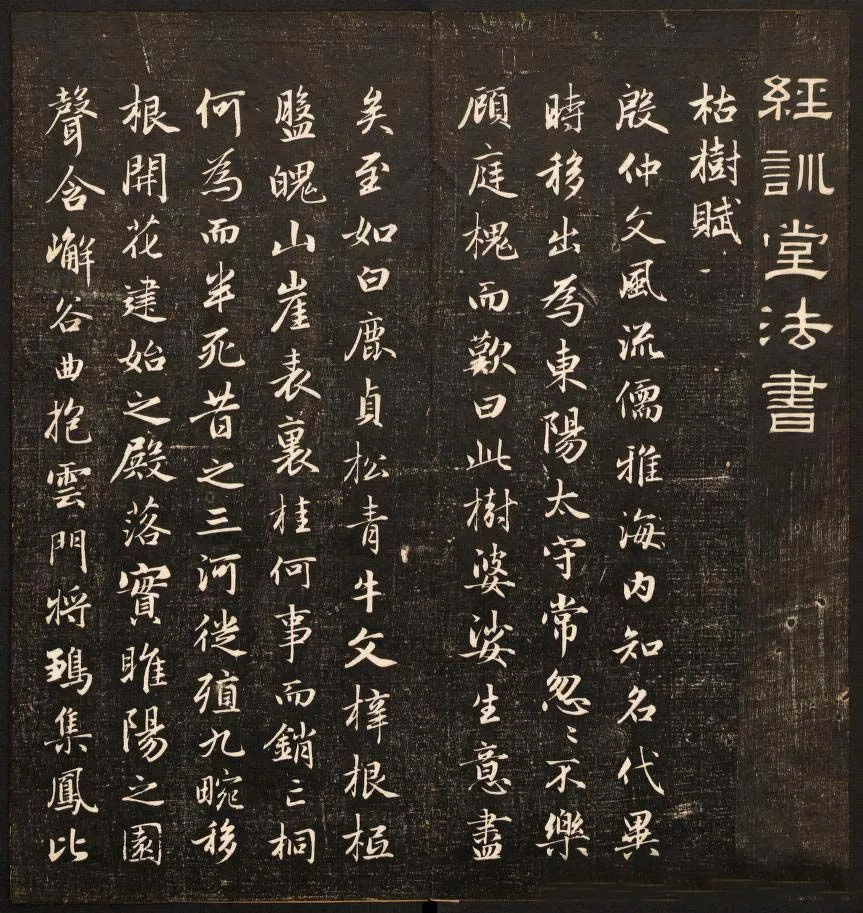 經訓堂法書
枯樹賦
殷仲文風流儒雅海内知名代異
時移出為東陽太守常忽〻不樂
顧庭槐而歎曰此樹婆娑生意盡
矣至如白鹿貞松青牛文梓根柢
盤魄山崖表裏桂何事而銷亡桐
何為而半死昔之三河徙殖九畹移
根開花建始之殿落實睢陽之園
聲含嶰谷曲抱雲門將鶵集鳳比